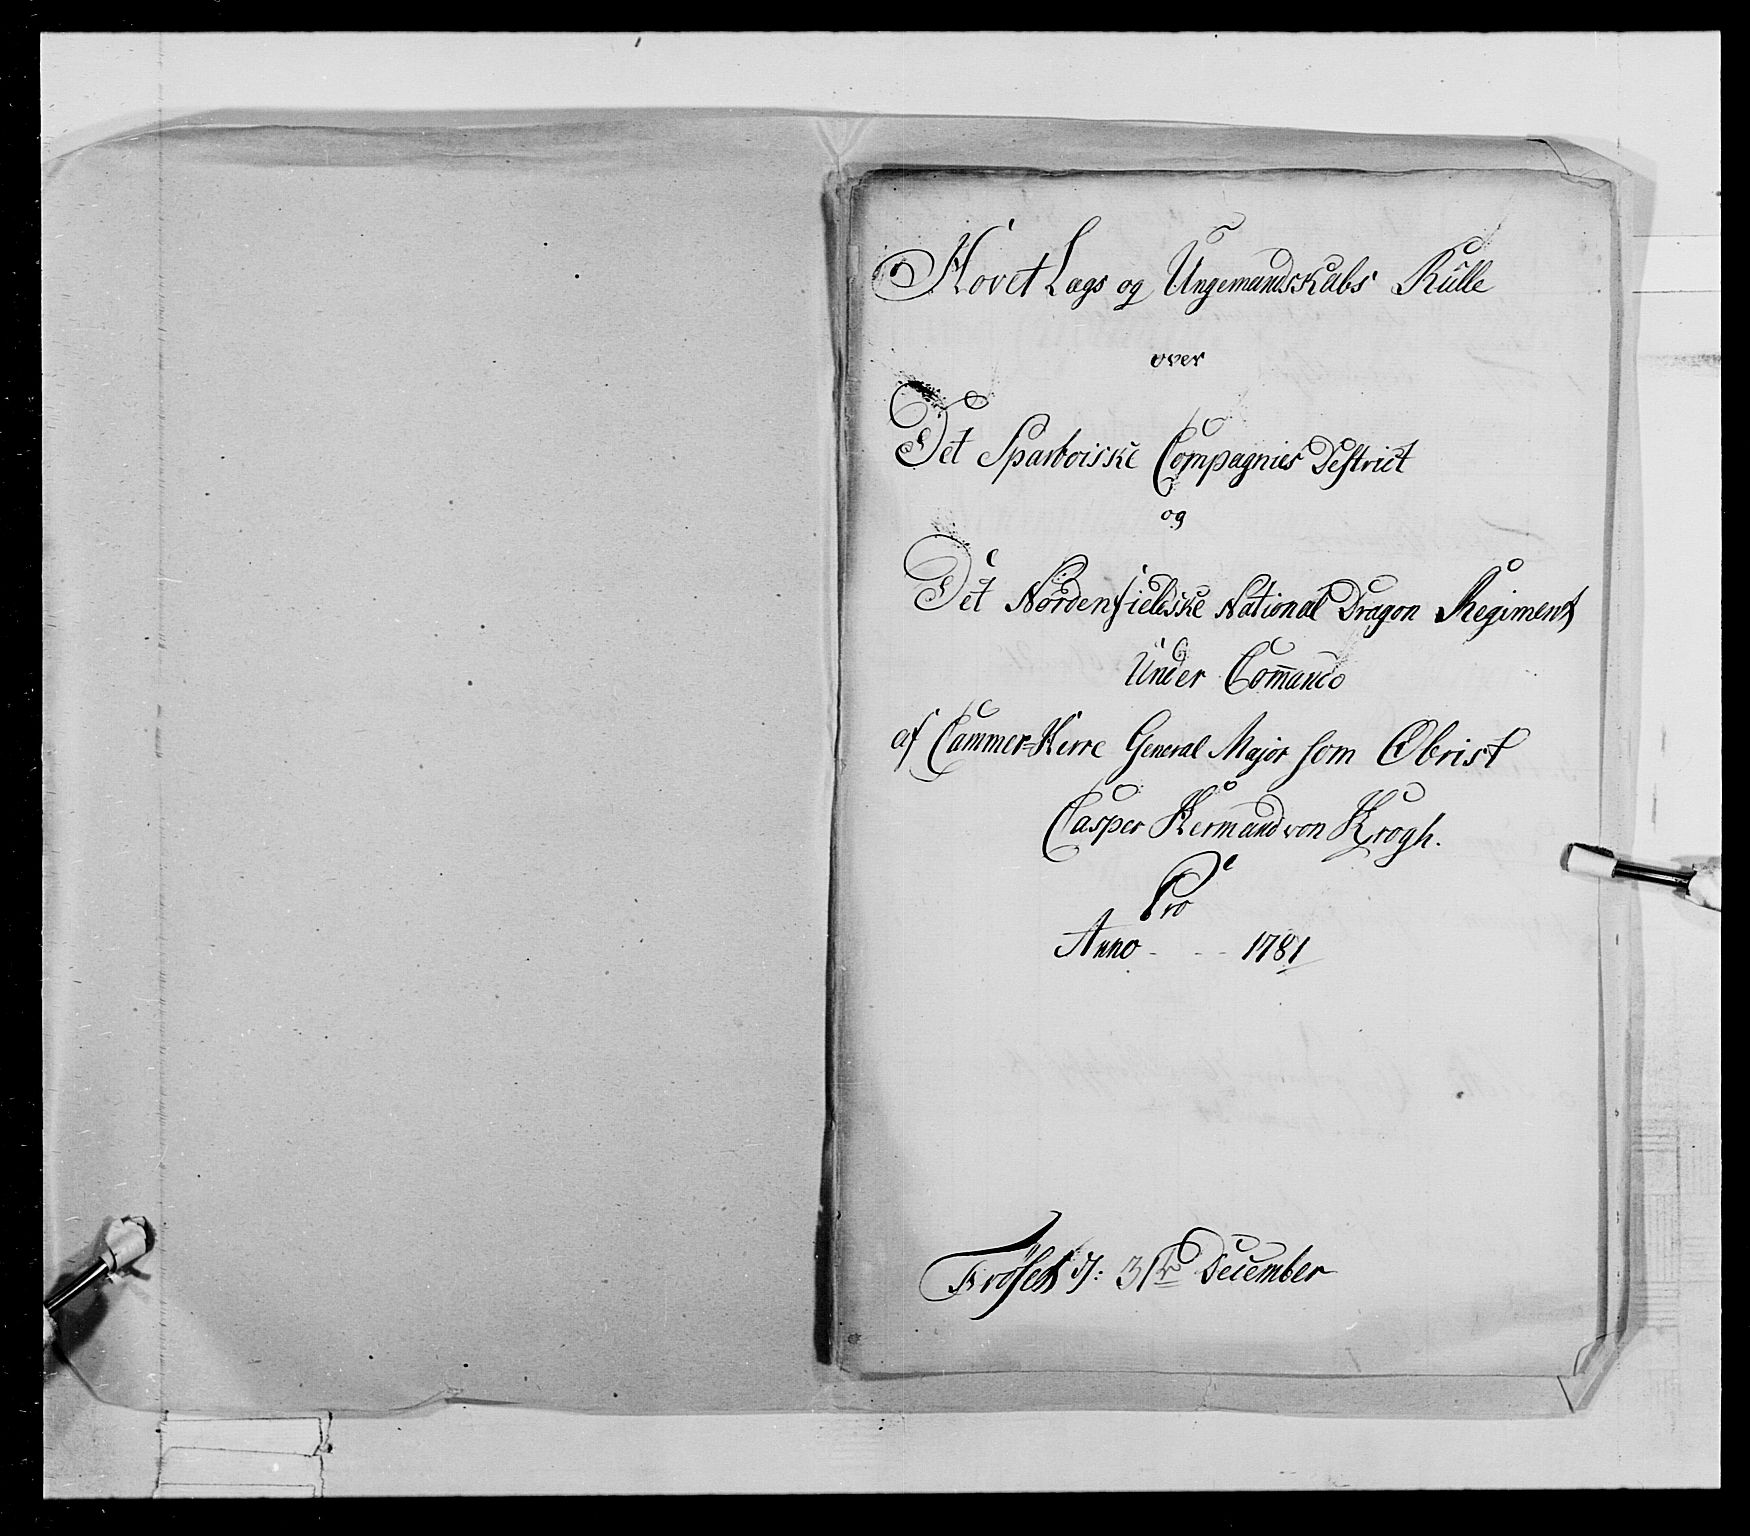 Hovet Lægs og Ungemandskabs Rulle
over
Det Sparboiske Compagnies Destrict
og
Det Nordenfieldske National Dragon Regiment
Under Com̄ando
af Cammer=Herre General Major som Obrist
Casper Hermand von Krogh.
Pro
Anno - - - 1781
d: 31te December